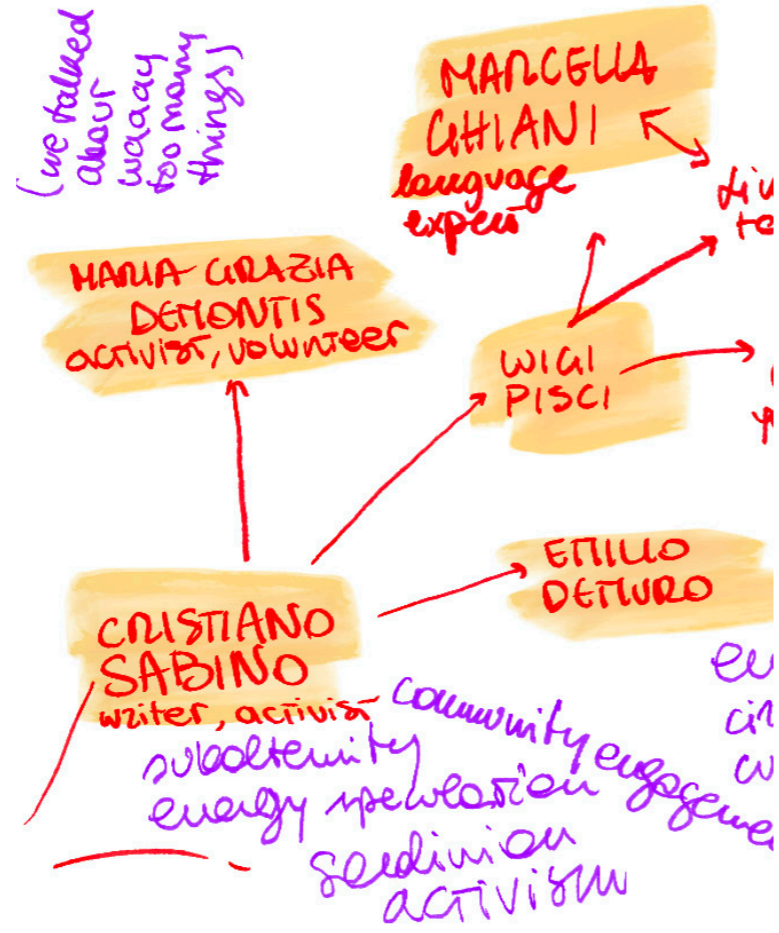 (we talked
about
waaay
too many
things)
MARCELLA
GHIANI
language
expert
MARIA GRAZIA
DEMONTIS
activist, volunteer
WIGI
PISCI
EMILIO
DEMURO
CRISTIANO
SABINO
writer, activist
community engagement
subalternity
energy speculation
sardinian
activism